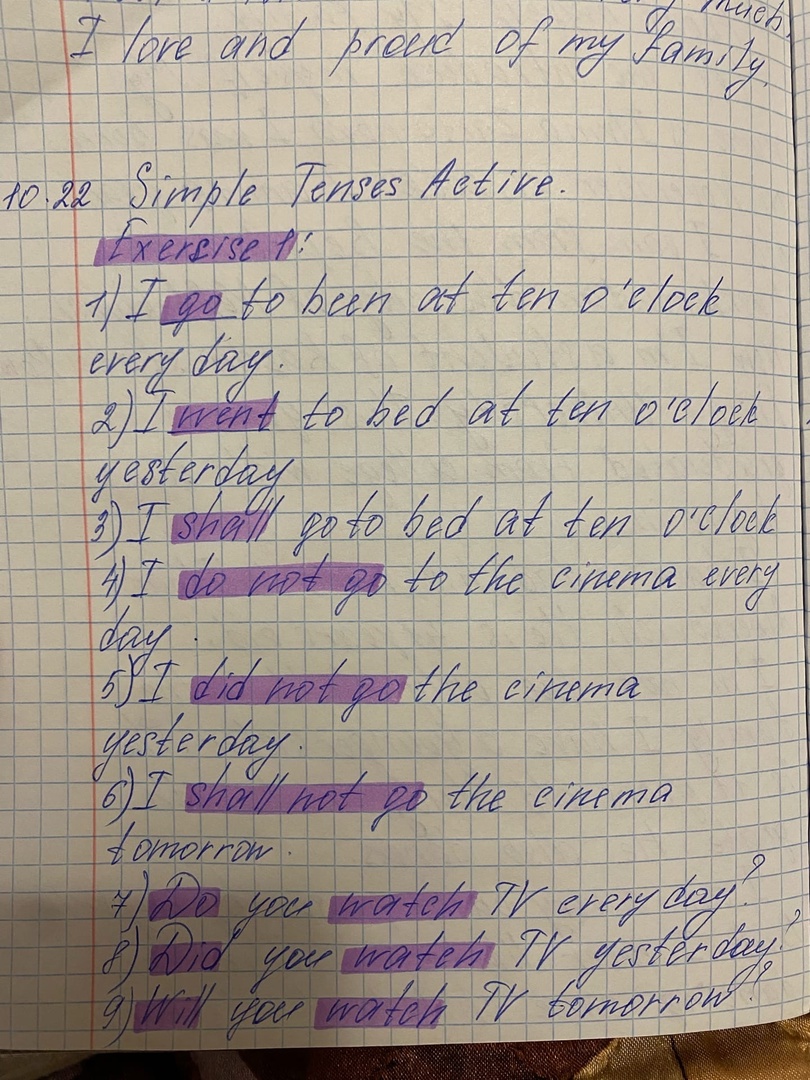 much,
I love and proud of my family.
10.22 Simple Tenses Active.
Exersise 1:
1) I go to been at ten o'clock
every day.
2) I went to bed at ten o'clock
yesterday
3) I shall go to bed at ten o'clock
4) I do not go to the cinema every
day.
5) I did not go the cinema
yesterday.
6) I shall not go the cinema
tomorrow.
7) Do you watch TV every day?
8) Did you watch TV yesterday?
9) Will you watch TV tomorrow?